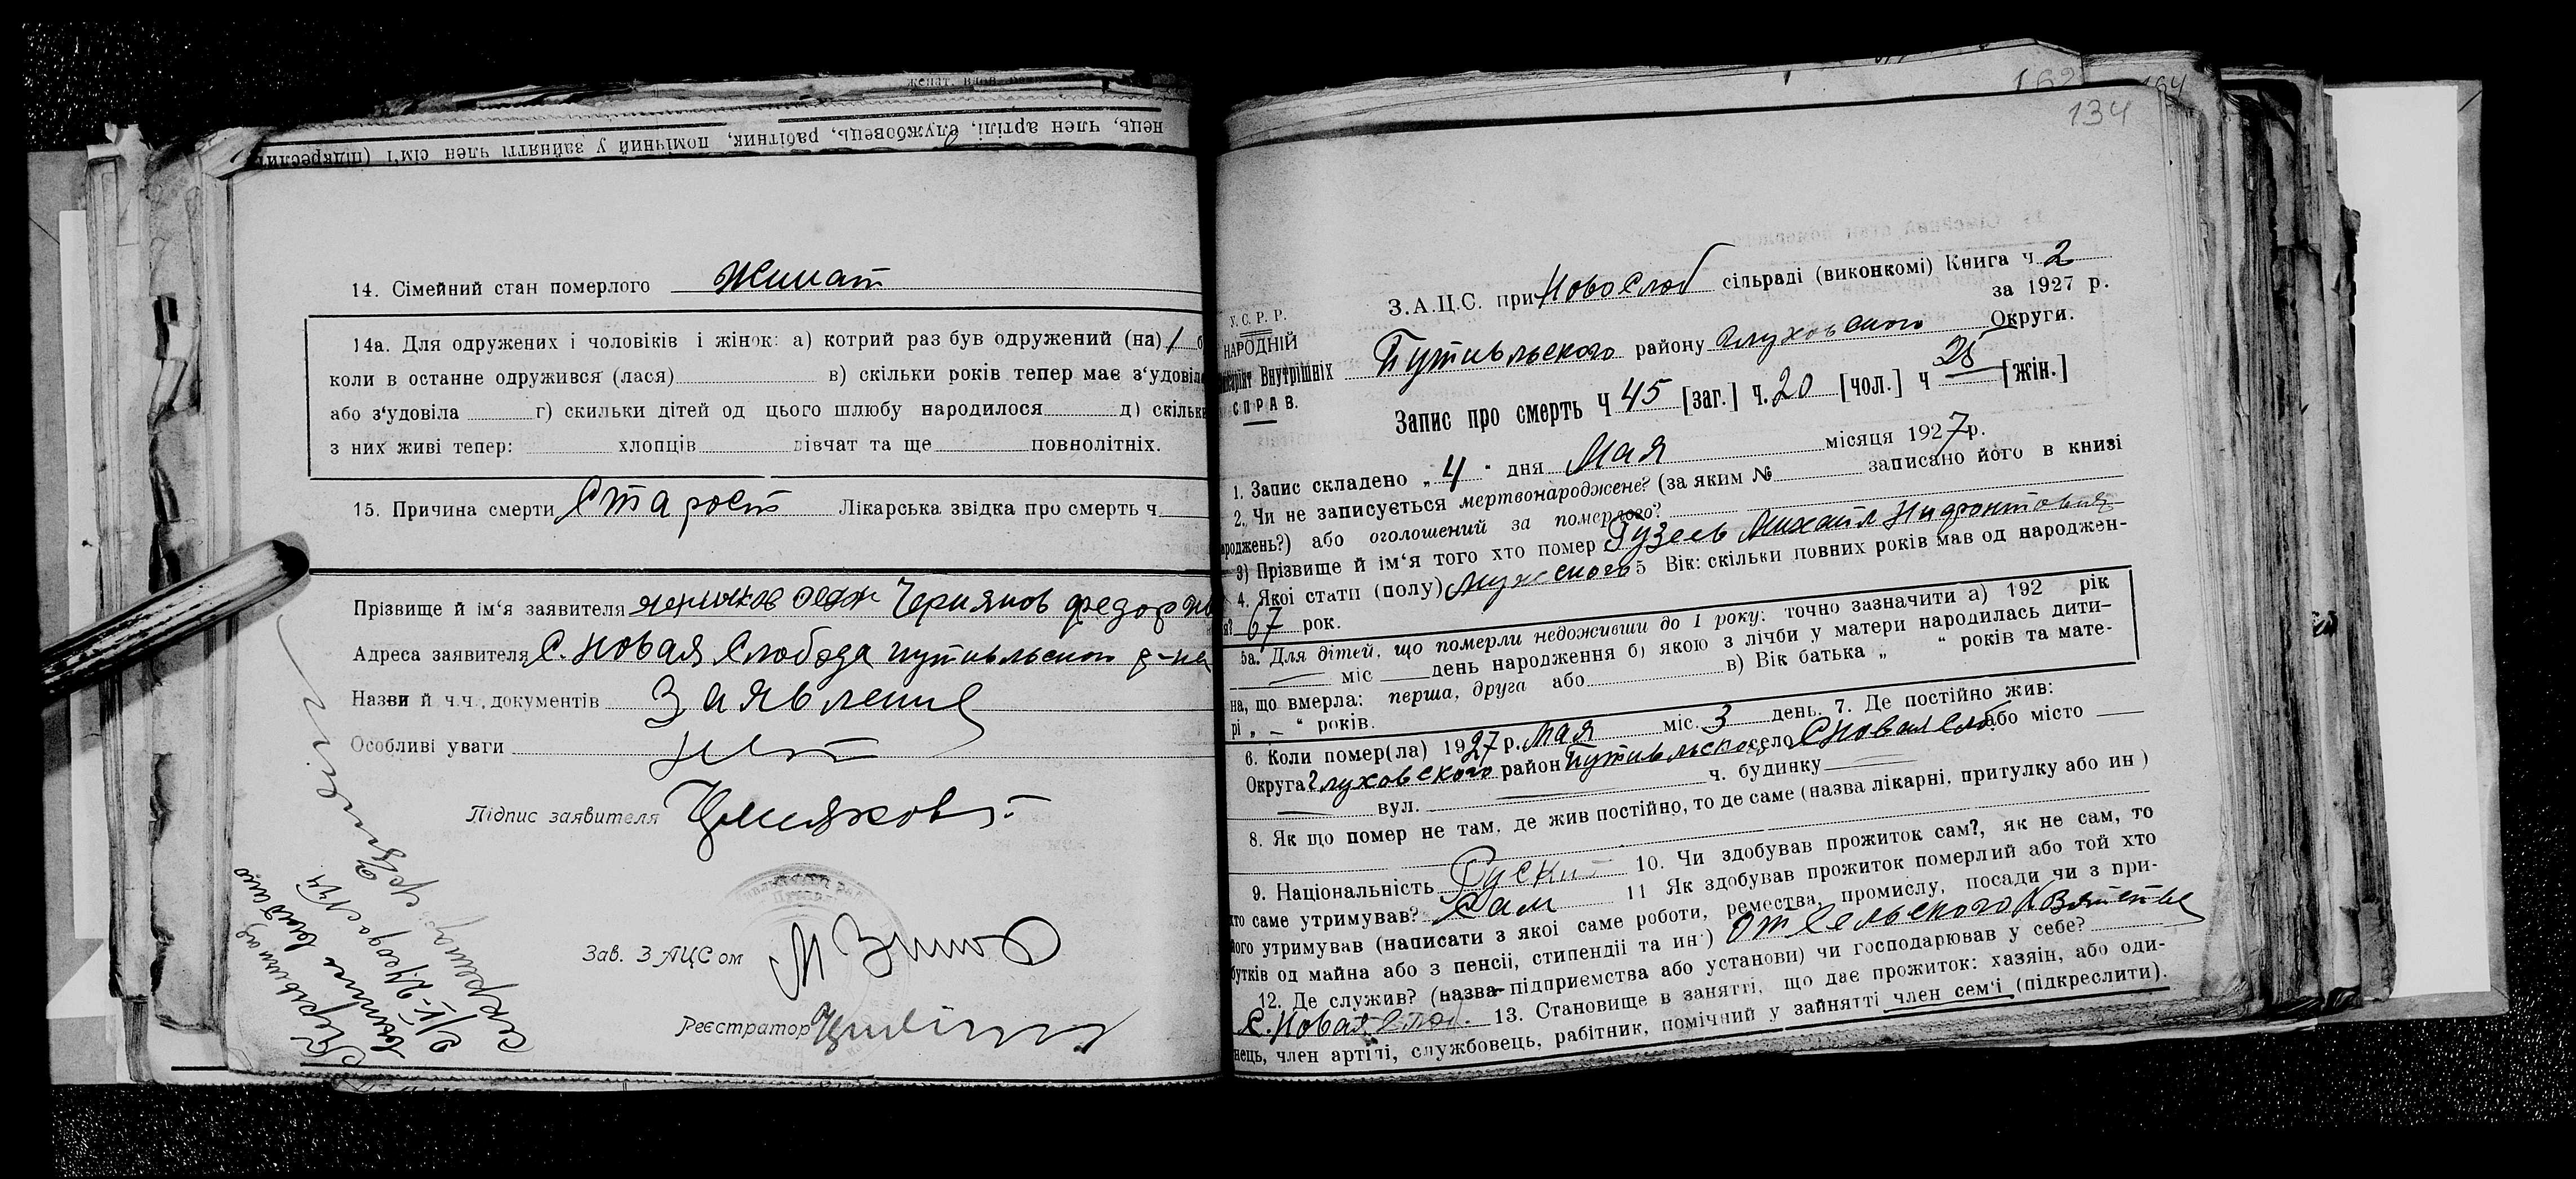 нець, член артілі, службовець, робітник, помічний у зайнятті член сім'ї (підкреслит
14. Сімейний стан померлого Женат
14а. Для одружених і чоловіків і жінок: а) котрий раз був одружений (на) 1 б
коли в останне одружився (лася) в) скільки років тепер має з'удовіла
або з'удовіла г) скильки дітей од цього шлюбу народилося д) скільки
з них живі тепер: хлопців дівчат та ще повнолітніх.
15. Причина смерти Старост Лікарська звідка про смерть ч.
Прізвище й ім'я заявителя Черняков Федор
Адреса заявителя С. Новая Слобода путивльского р-на
Назви й ч.ч. документів Заявление
Особливі уваги нет
Підпис заявителя
Зав. ЗАЦСом М Зимов
Реєстратор
162 164
134
У.С.Р.Р.
НАРОДНІЙ
Внутрішніх
СПРАВ.
З.А.Ц.С. при НовоСлоб сільраді (виконкомі) Книга ч 2
за 1927 р.
Путивльского району Глуховского Округи.
Запис про смерть ч 45 [заг.] ч. 20 [чол.] ч 25 [жін.]
1. Запис складено „4" дня Мая місяця 1927 р.
2. Чи не записується мертвонароджене? (за яким № записано його в книзі
ароджень?) або оголошений за померлого?
3) Прізвище й ім'я того хто помер Гузеев Михаил Нифонтович
4. Якої стати (полу) мужского 5 Вік: скільки повних років мав од народжен-
ня? 67 рок.
5а. Для дітей, що померли недоживши до 1 року: точно зазначити а) 192 рік
міс день народження б) якою з лічби у матери народилась дити-
на, що вмерла: перша, друга або в) Вік батька „ " років та мате-
рі „ — " років.
6. Коли помер(ла) 1927 р. Мая міс. 3 день. 7. Де постійно жив:
Округа Глуховского район Путивльско село С Новая Слоб. або місто
вул. ч. будинку
8. Як що помер не там, де жив постійно, то де саме (назва лікарні, притулку або ин)
9. Національність Руский 10. Чи здобував прожиток сам?, як не сам, то
хто саме утримував? Сам 11 Як здобував прожиток померлий або той хто
його утримував (написати з якої саме роботи, ремества, промислу, посади чи з при-
бутків од майна або з пенсії, стипендії та ин.) От Сельского
12. Де служив? (назва підприємства або установи) чи господарював у себе?
С. Новая Слоб. 13. Становище в занятті, що дає прожиток: хазяін, або оди-
нець, член артілі, службовець, рабітник, помічний у зайнятті член сем'і (підкреслити).